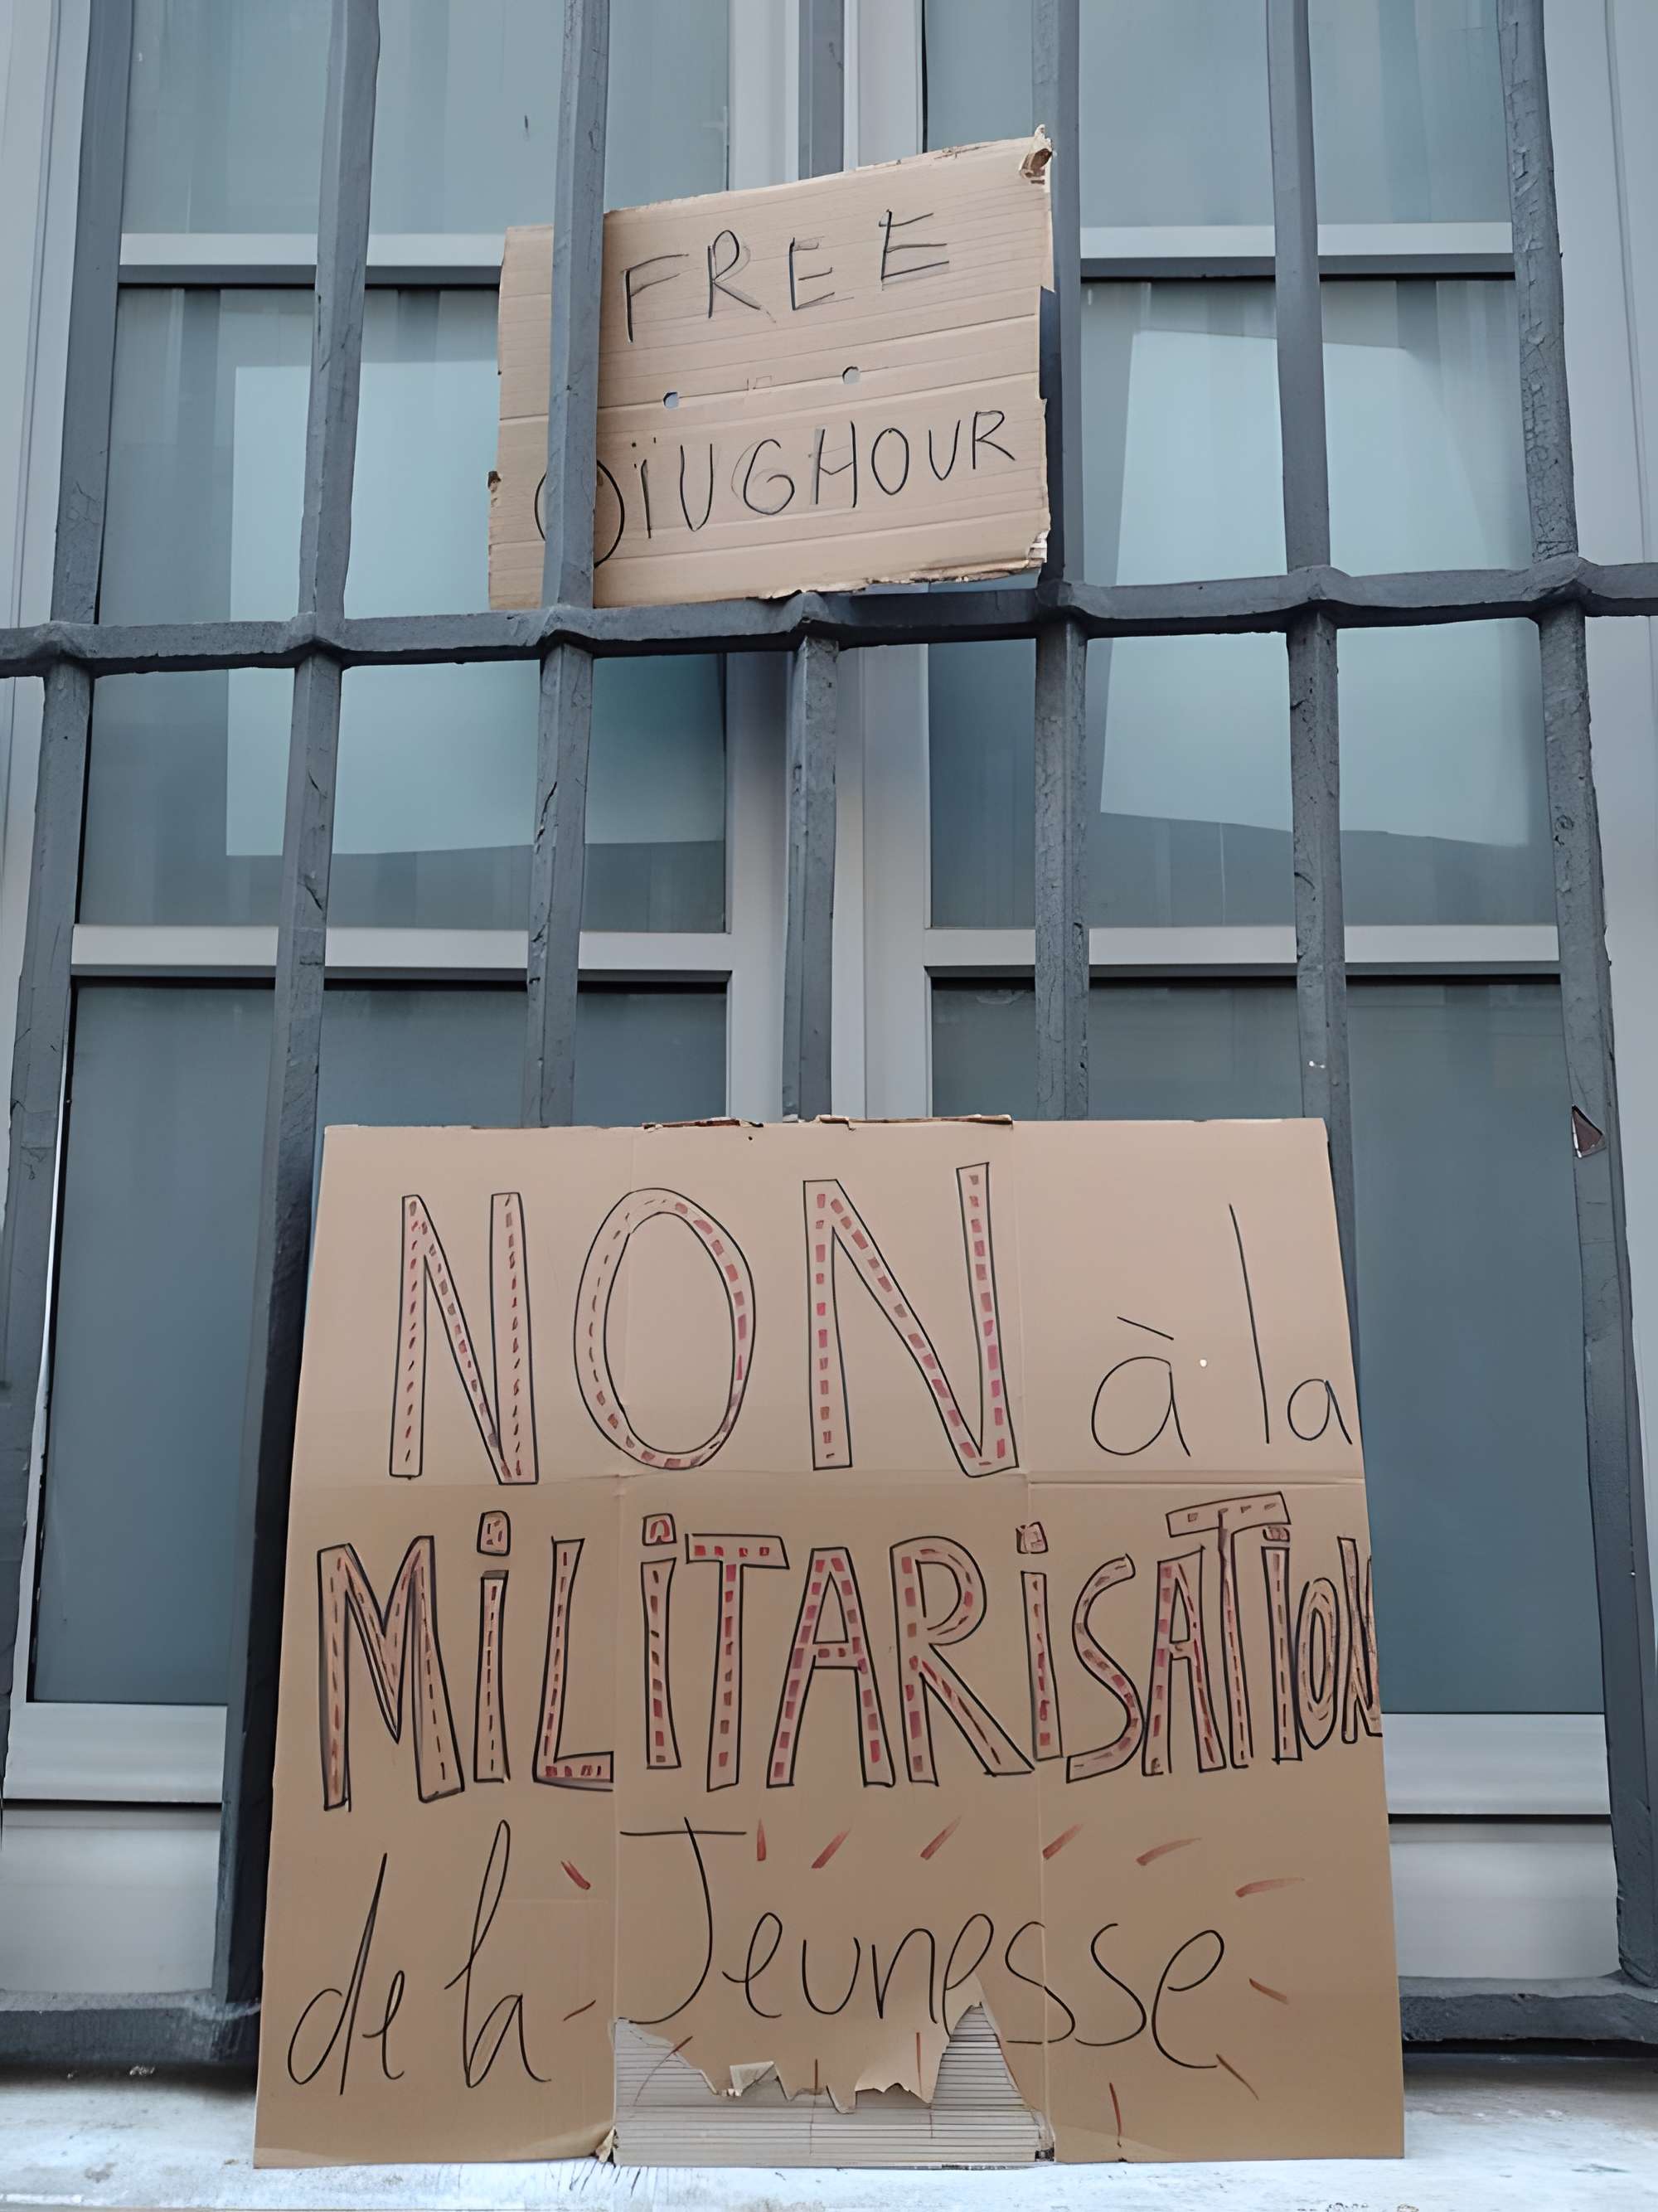 FREE
OÏUGHOUR
NON à la
MiLiTARiSATiON
de la Jeunesse